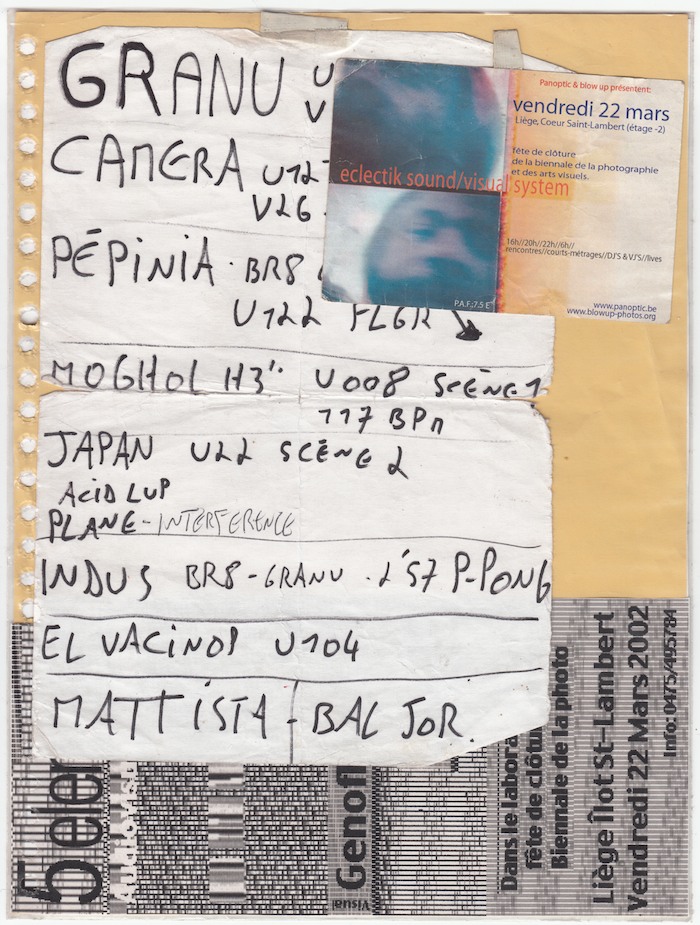 GRANU U
V
CAMERA U12
V26
PÉPINIA · BR8
U122 FLGR
MOGHOL H3" U008 SCÈNE 1
117 BPM
JAPAN U22 SCÈNE 2
ACID LUP
PLANE - INTERFERENCE
INDUS BR8 - GRANU · 2'57 P-PONG
EL VACINOS U104
MATTISTA - BAL JOR.
Panoptic & blow up présentent:
vendredi 22 mars
Liège, Coeur Saint-Lambert (étage -2)
fête de clôture
de la biennale de la photographie
et des arts visuels.
eclectik sound/visual system
16h//20h//22h//6h//
rencontres//courts-métrages//DJ'S & VJ'S//lives
P.A.F.:7.5 E
www.panoptic.be
www.blowup-photos.org
5 eler
Visual
Genofl
Dans le labora
fête de clôtu
Biennale de la photo
Liège Îlot St-Lambert
Vendredi 22 Mars 2002
Info: 0475/495784